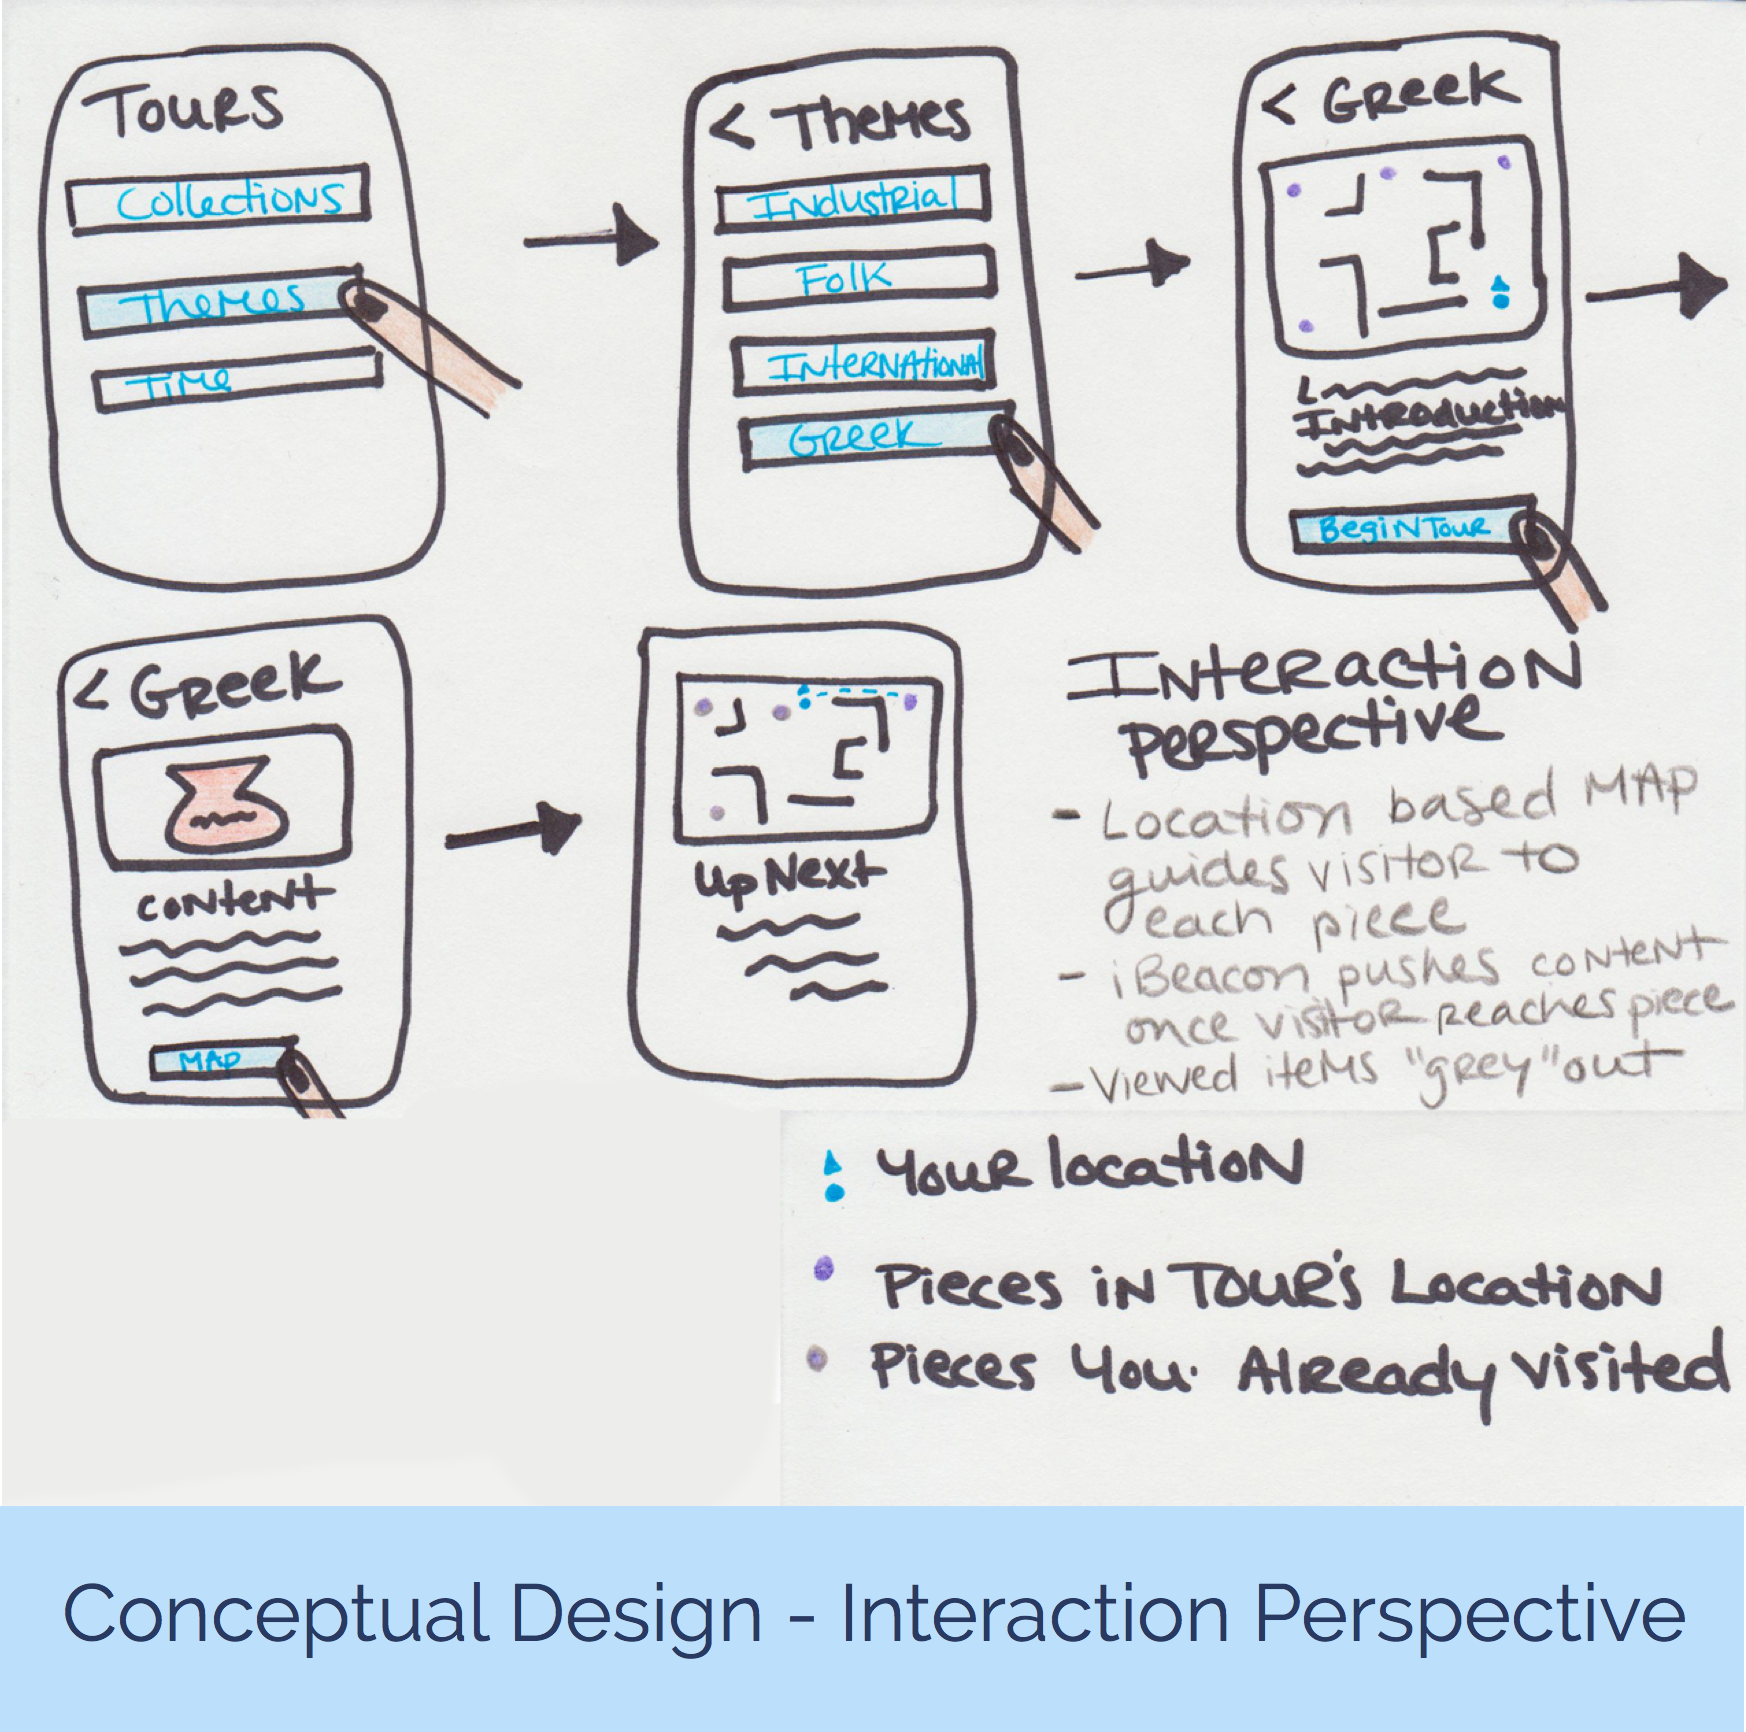 Tours
Collections
Themes
Time
< Themes
Industrial
Folk
International
Greek
< Greek
Introduction
Begin Tour
< Greek
content
MAP
Up Next
Interaction
perspective
- Location based MAP
guides visitor to
each piece
- iBeacon pushes content
once visitor reaches piece
- Viewed items "grey" out
Your location
Pieces in Tour's Location
Pieces You Already visited
Conceptual Design - Interaction Perspective